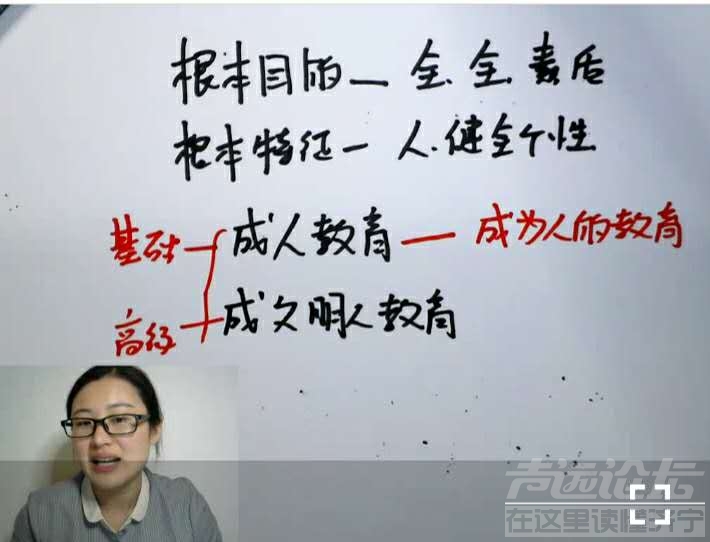 根本目的—全.全.素质
根本特征—人.健全个性
基础—成人教育—成为人的教育
高级—成文明人教育
声远论坛
在这里读懂济宁